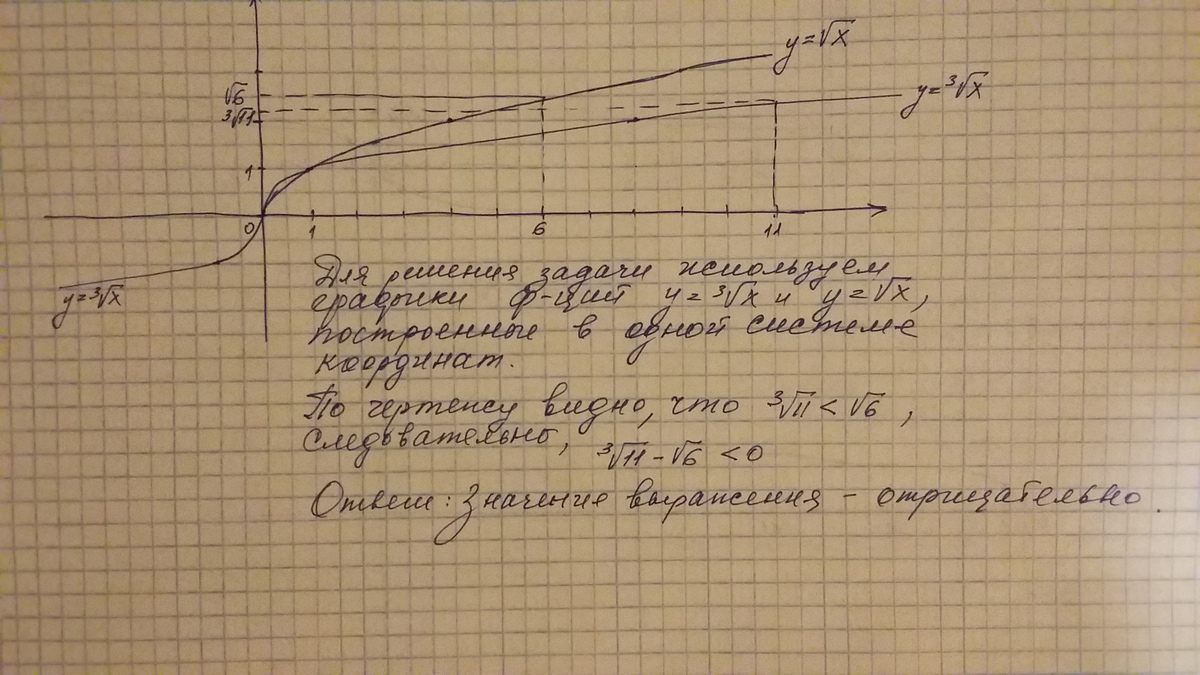 y=√x
y=³√x
√6
³√11
1
0
1
6
11
y=³√x
Для решения задачи используем
графики ф-ций y=³√x и y=√x,
построенные в одной системе
координат.
По чертежу видно, что ³√11 < √6 ,
следовательно,
³√11 - √6 < 0
Ответ: Значение выражения - отрицательно.